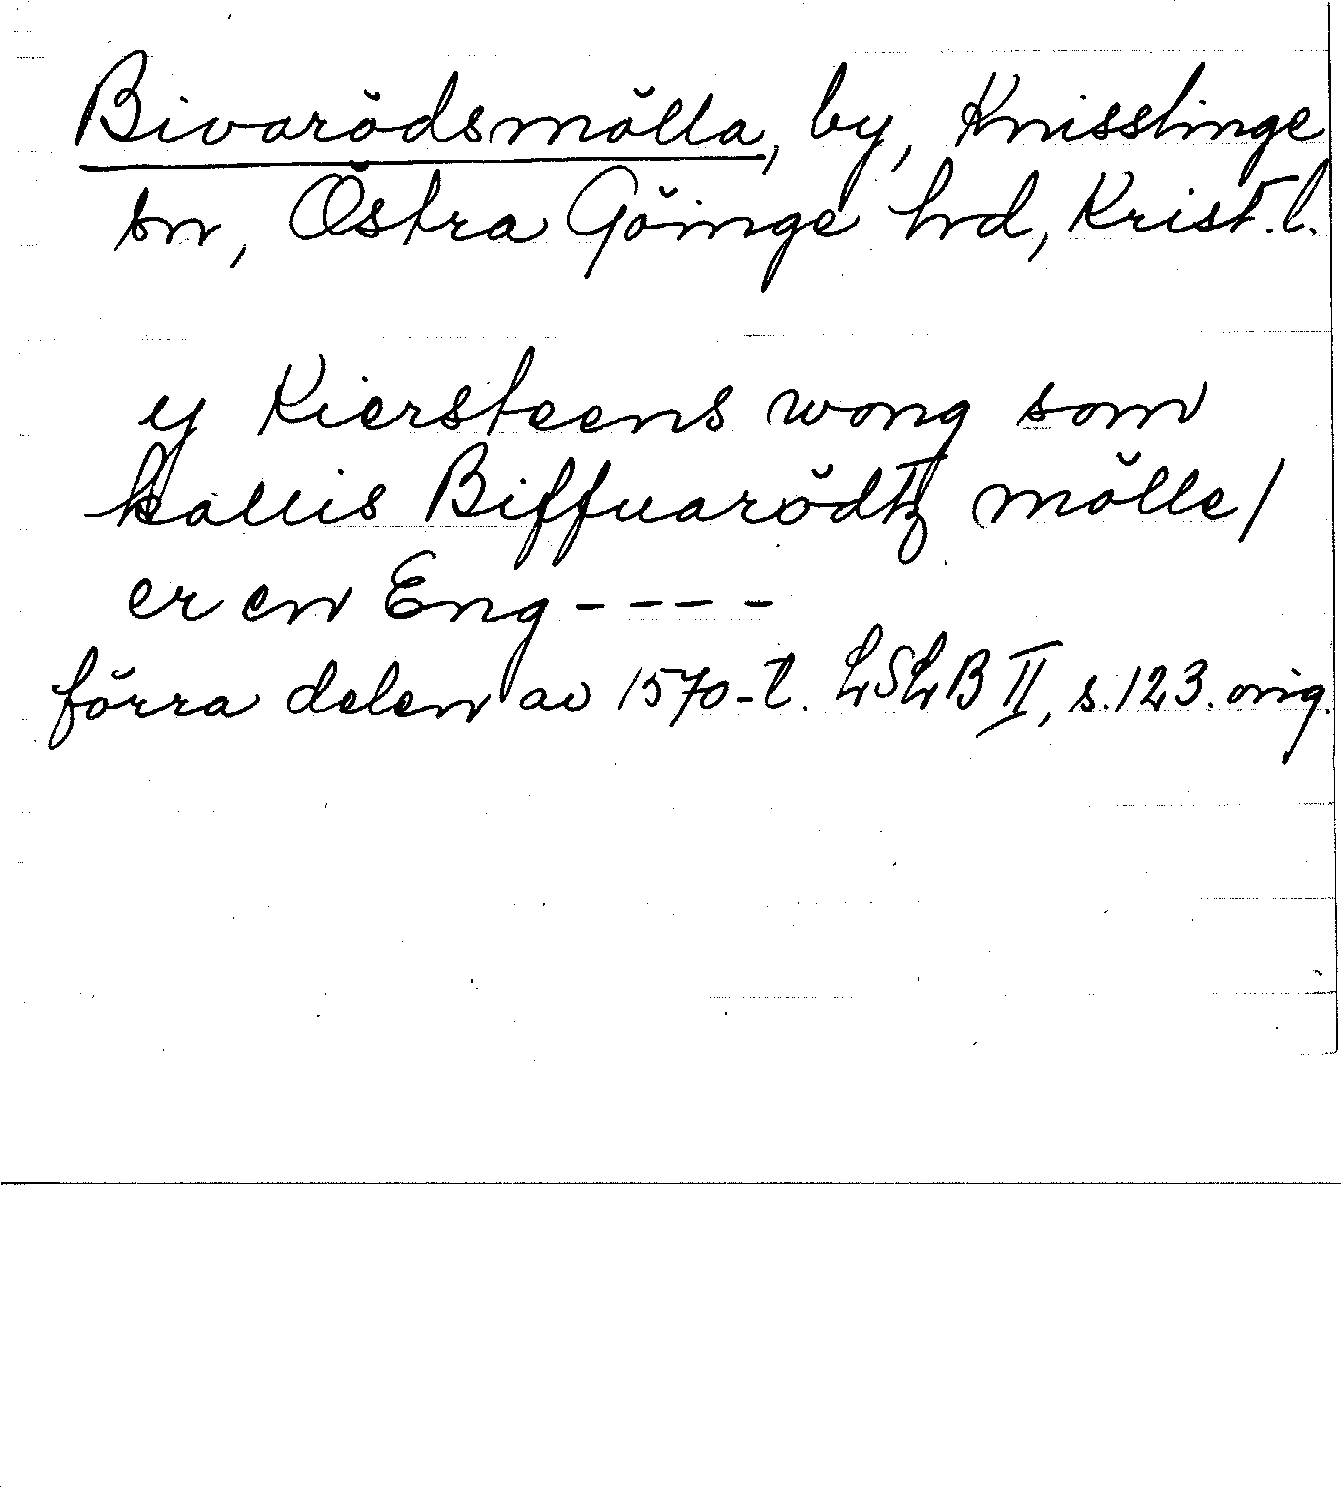 Bivarödsmölla, by, Knisslinge
sn, Östra Göinge hrd, Krist. l.
y Kiersteens wong som
kallis Biffuarödtz mölle /
er en Eng ----
förra delen av 1570-t. LSLB II, s. 123. orig.